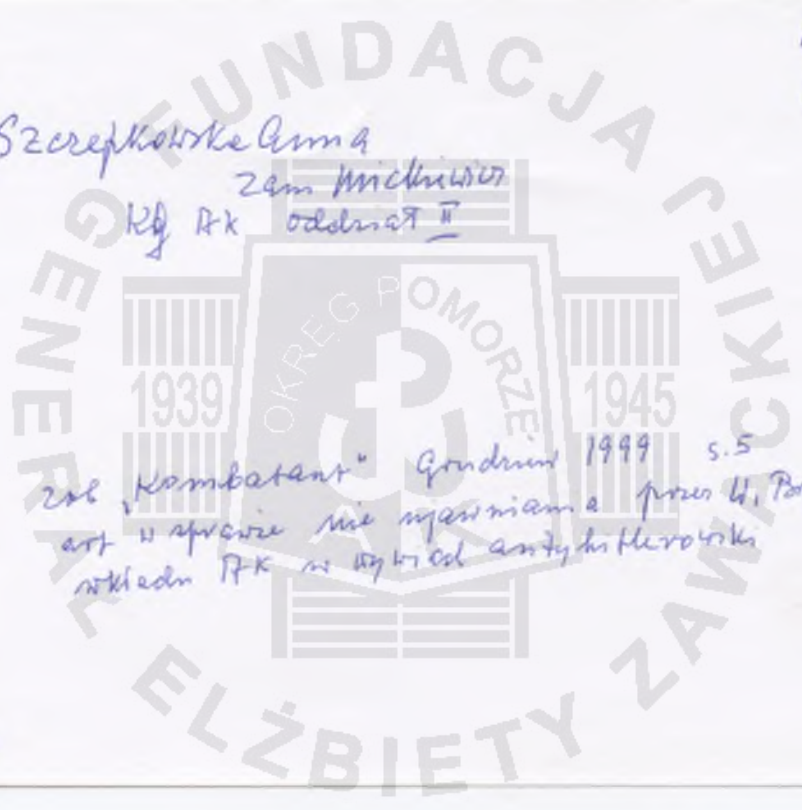 Szczepkowska Anna
zam Mickiewicz
KG AK oddział II
zob "Kombatant" Grudzień 1999 s.5
art w sprawie nie ujawniania przez W.
wkładu AK w wywiad antyhitlerowski
FUNDACJA
GENERAŁ ELŻBIETY ZAWACKIEJ
OKRĘG POMORZE
1939
1945
AK